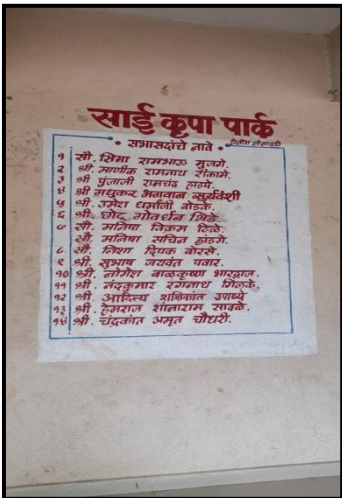 साई कृपा पार्क
सभासदांचे नावे
१ सौ. सिमा रामभाऊ मुजगे.
२ श्री. माणीक रामनाथ रोकामे.
३ श्री पुंजाजी रामचंद्र हाडपे.
४ श्री मधुकर भगवान सुर्यवंशी
५ श्री. उमेश धर्माजी बोडके.
६ श्री. छोटू गोवर्धन भिडे.
७ सौ. मनिषा विक्रम ढिले.
सौ. मनिषा सचिन हांडगे.
८ सौ. निशा दिपक बोरसे.
९ श्री. सुभाष जयवंत पवार.
१० श्री. योगेश बाळकृष्ण भारद्वाज.
११ श्री. नंदकुमार रंगनाथ मिळके.
१२ श्री. आदित्य शशिकांत उपाध्ये
१३ श्री. हेमराज शांताराम साबळे.
१४ श्री. चंद्रकांत अमृत चौधरी.